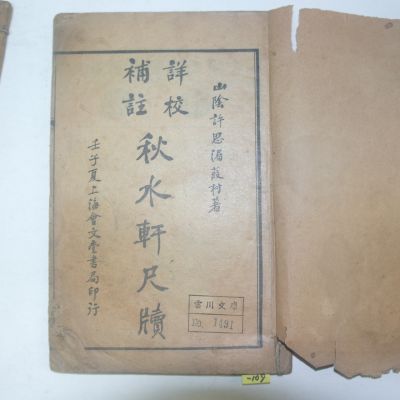 山陰許思湄葭村著
詳校
補註
秋水軒尺牘
壬午夏上海會文堂書局印行
雲川文庫
No. 1491
-109